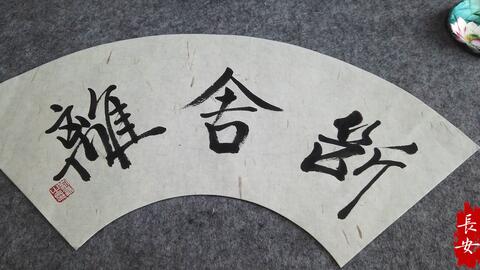 断舍離
長安